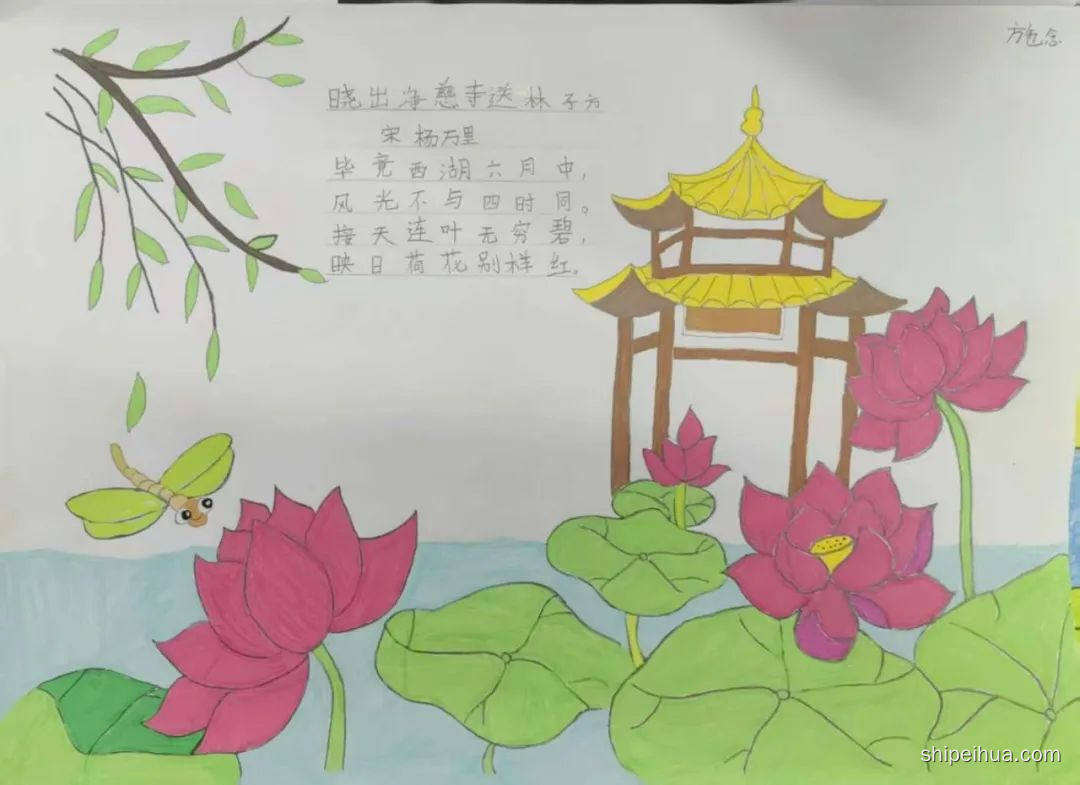 晓出净慈寺送林子方
宋 杨万里
毕竟西湖六月中，
风光不与四时同。
接天连叶无穷碧，
映日荷花别样红。
shipeihua.com